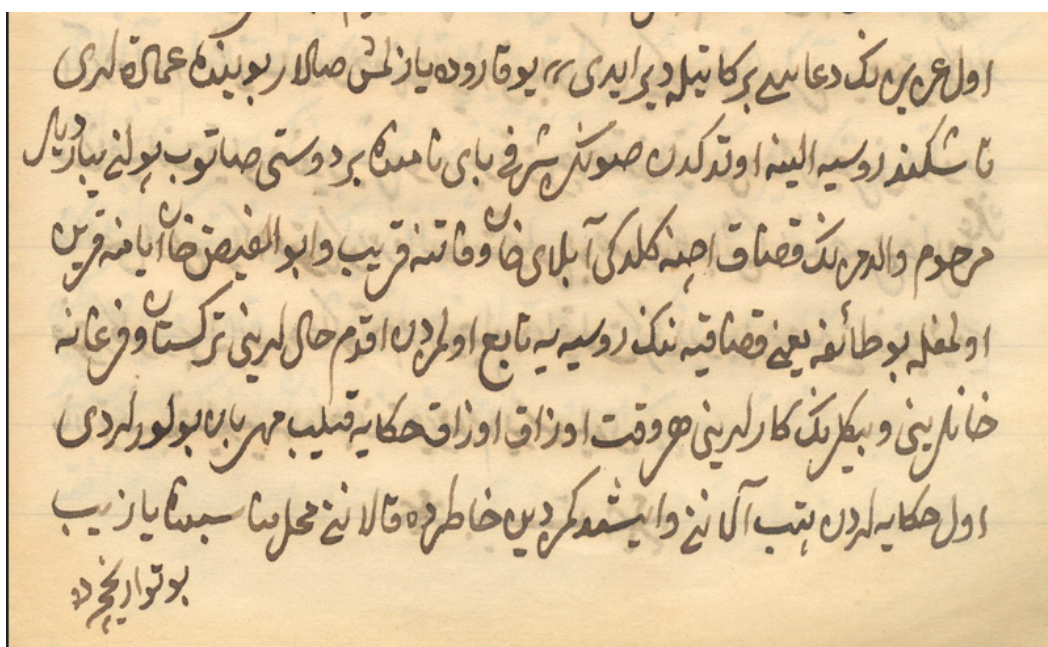 اول عزیزنک دعاسی برکاتیله دیر ایدی ,, یوقاروده یازلمش صالار بوینده عمالاة لری
تاشکند روسیه الینه اوتدکدن صونک شرفی بای نامنده بر دوستی صاتوب بولنی
مرحوم والدمزنک قصاق اچینه کلدکی آبلای خان وفاتنه قریب وابوالفیض خان ایامنه قرین
اولمغله بو طائفه یعنی قصاقیه ننک روسیه یه تابع اولمزدن اقدم حال لرینی ترکستان وفرغانه
خانلرینی وبیکلرنک کارلرینی هر وقت اوزاق اوزاق حکایه قیلیب مهربان بولورلردی
اول حکایه لردن یتیب آلاننی وایشیدکمردین خاطرده قالاننی محل مناسبندا یازیب
بو تواریخده